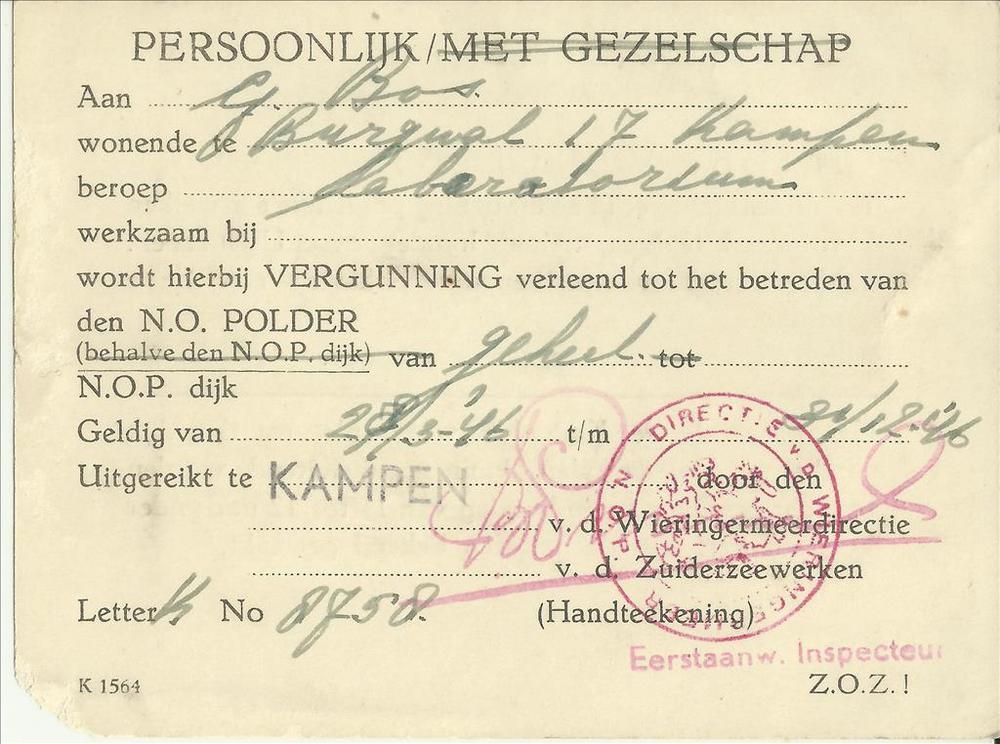 PERSOONLIJK/MET GEZELSCHAP
Aan G. Bos.
wonende te Burgwal 17 Kampen
beroep Laboratorium
werkzaam bij
wordt hierbij VERGUNNING verleend tot het betreden van
den N.O. POLDER
(behalve den N.O.P. dijk) van geheel. tot
N.O.P. dijk
Geldig van 28/3-'46 t/m 31/12-'46
Uitgereikt te KAMPEN door den
v. d. Wieringermeerdirectie
v. d. Zuiderzeewerken
Letter K No 8758. (Handteekening)
DIRECTIE v. D. WIERINGERMEER N.O.P.
Eerstaanw. Inspecteur
K 1564 Z.O.Z.!